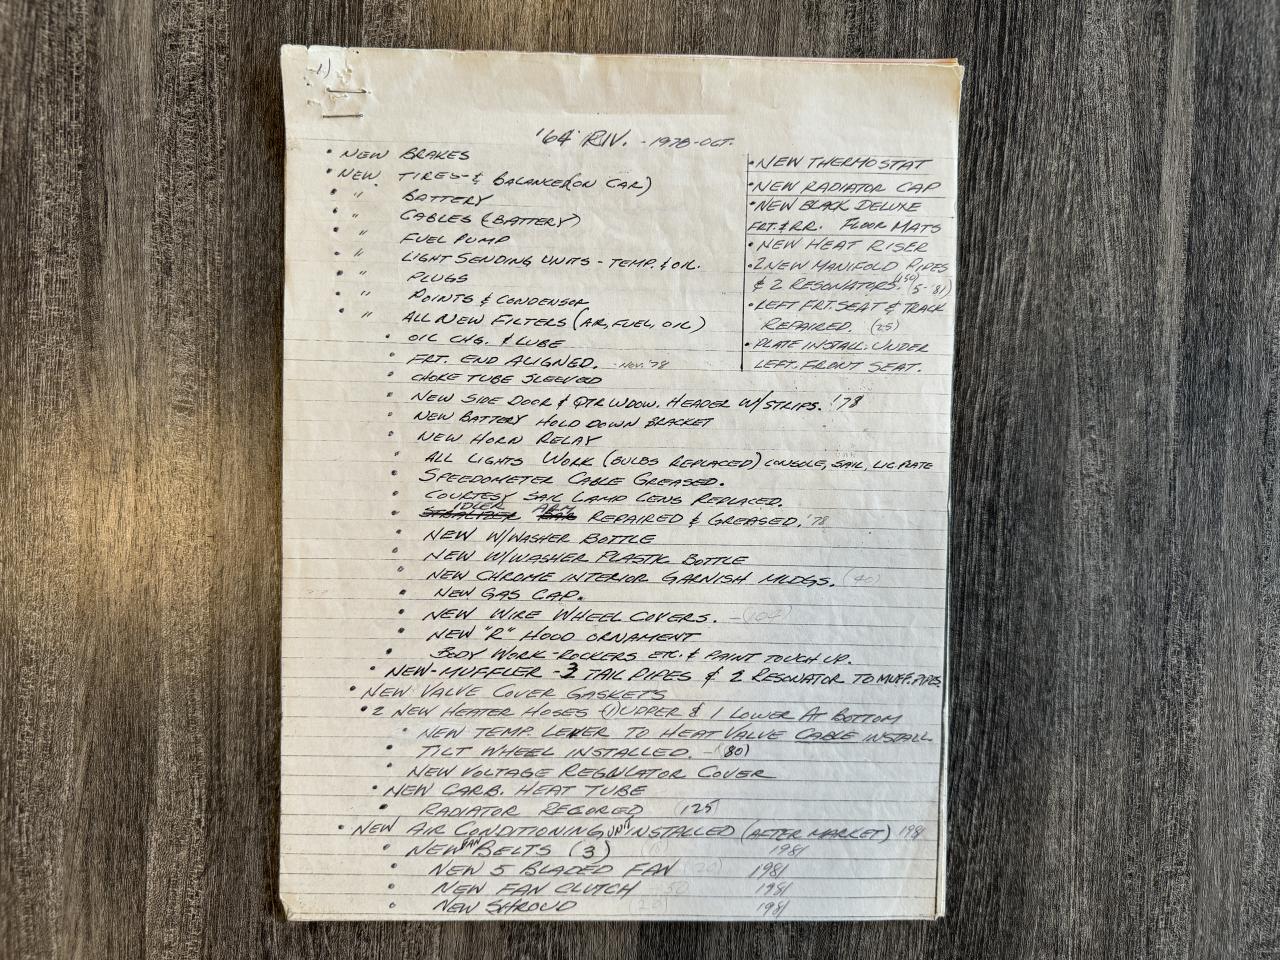 1.)
'64 RIV. - 1978-OCT.
• NEW BRAKES
• NEW TIRES - & BALANCED (ON CAR)
• " BATTERY
• " CABLES (BATTERY)
• " FUEL PUMP
• " LIGHT SENDING UNITS - TEMP. & OIL.
• " PLUGS
• " POINTS & CONDENSOR
• " ALL NEW FILTERS (AIR, FUEL, OIL)
• OIL CHG. & LUBE
• FRT. END ALIGNED. - NOV. '78
• CHOKE TUBE SLEEVED
• NEW SIDE DOOR & QTR WDOW. HEADER W/STRIPS. '78
• NEW BATTERY HOLD DOWN BRACKET
• NEW HORN RELAY
• ALL LIGHTS WORK (BULBS REPLACED) CONSOLE, SAIL, LIC PLATE
• SPEEDOMETER CABLE GREASED.
• COURTESY SAIL LAMP LENS REPLACED.
• IDLER ARM REPAIRED & GREASED. '78
• NEW W/WASHER BOTTLE
• NEW W/WASHER PLASTIC BOTTLE
• NEW CHROME INTERIOR GARNISH MLDGS. (40)
• NEW GAS CAP.
• NEW WIRE WHEEL COVERS. - (104)
• NEW "R" HOOD ORNAMENT
• BODY WORK - ROCKERS ETC. & PAINT TOUCH UP.
• NEW - MUFFLER - 2 TAIL PIPES & 2 RESONATOR TO MUFF. PIPES
• NEW VALVE COVER GASKETS
• 2 NEW HEATER HOSES (1) UPPER & 1 LOWER AT BOTTOM
• NEW TEMP. LEVER TO HEAT VALVE CABLE INSTALL
• TILT WHEEL INSTALLED. - (80)
• NEW VOLTAGE REGULATOR COVER
• NEW CARB. HEAT TUBE
• RADIATOR RECORED (125)
• NEW AIR CONDITIONING UNIT INSTALLED (AFTER MARKET) 1981
• NEW FAN BELTS (3) 1981
• NEW 5 BLADED FAN (20) 1981
• NEW FAN CLUTCH 50 1981
• NEW SHROUD (20) 1981
• NEW THERMOSTAT
• NEW RADIATOR CAP
• NEW BLACK DELUXE
FRT. & RR. FLOOR MATS
• NEW HEAT RISER
• 2 NEW MANIFOLD PIPES
& 2 RESONATORS. (150) (5-'81)
• LEFT FRT. SEAT & TRACK
REPAIRED. (25)
• PLATE INSTALL. UNDER
LEFT. FRONT SEAT.